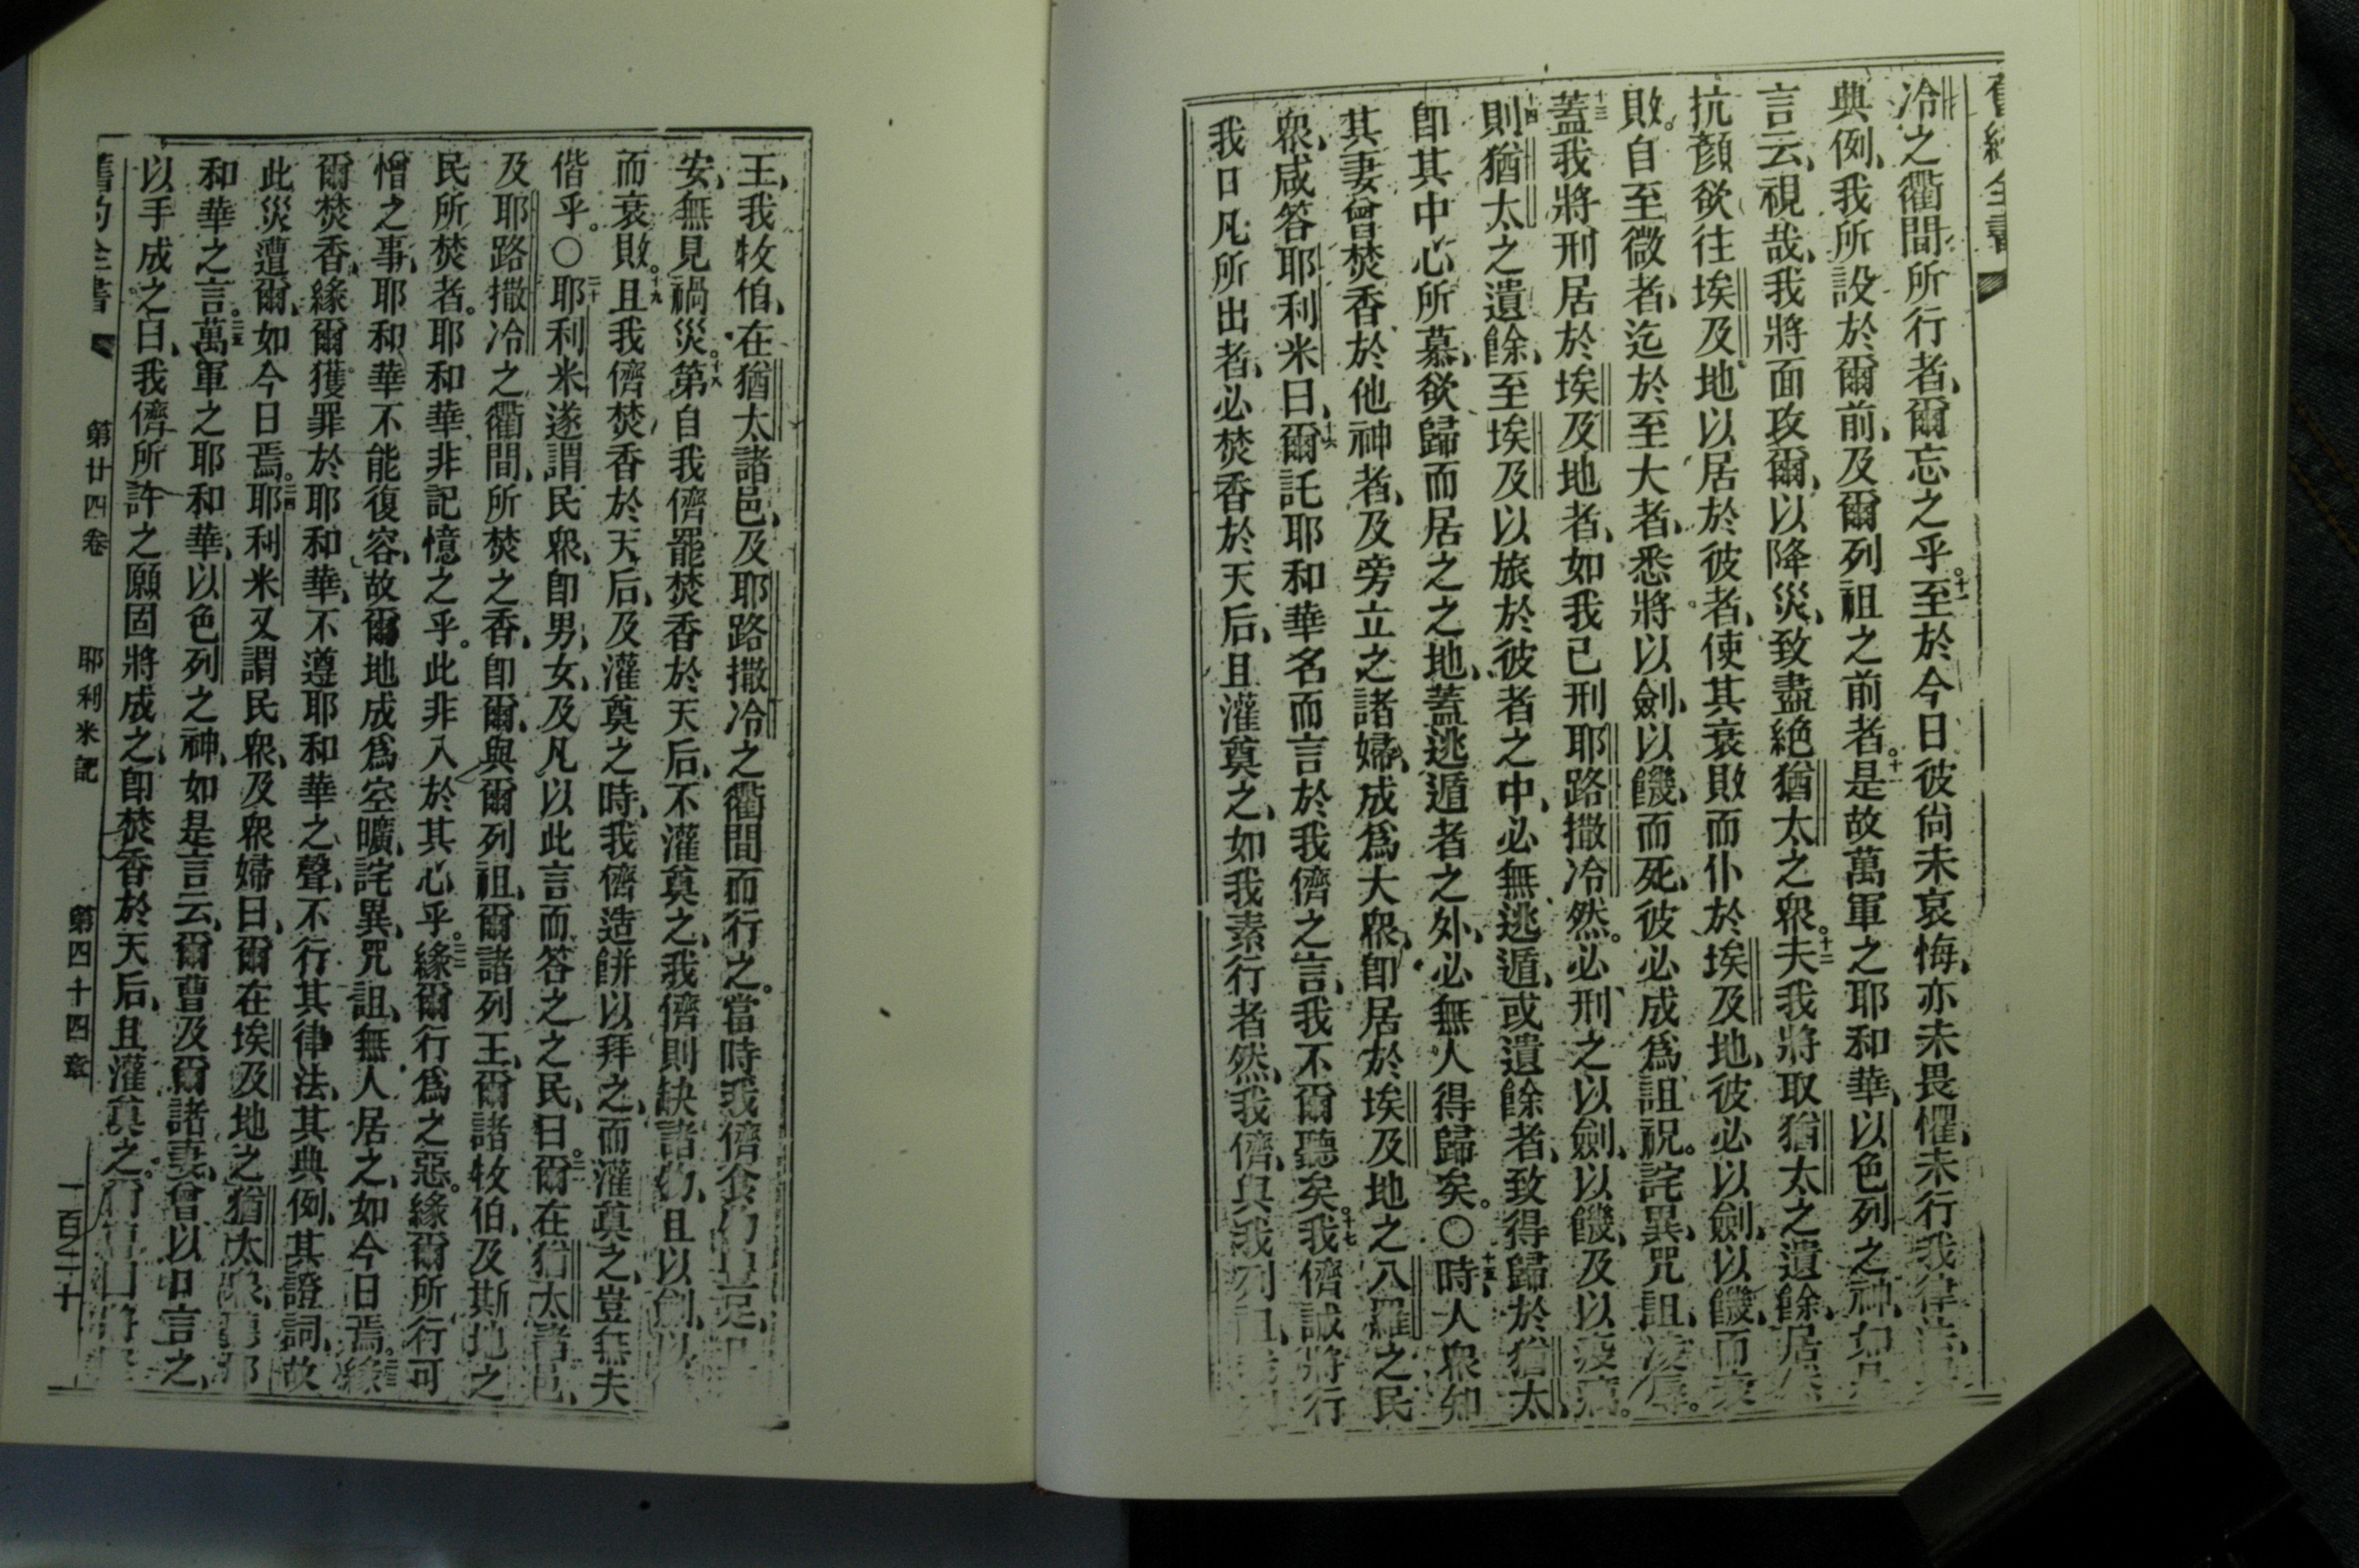 舊約全書
冷之衢間所行者、爾忘之乎。十至於今日彼尙未哀悔、亦未畏懼、未行我律法、
典例、我所設於爾前、及爾列祖之前者。十一是故萬軍之耶和華、以色列之神、如是
言云、視哉、我將面攻爾、以降災、致盡絕猶太之眾。十二夫我將取猶太之遺餘、居
抗顏欲往埃及地以居於彼者、使其衰敗而仆於埃及地、彼必以劍、以饑、而衰
敗。自至微者、迄於至大者、悉將以劍、以饑、而死、彼必成爲詛祝。詫異、咒詛、凌辱。
十三蓋我將刑居於埃及地者、如我已刑耶路撒冷然。必刑之以劍、以饑、及以疫癘。
十四則猶太之遺餘、至埃及以旅於彼者之中、必無逃遁、或遺餘者、致得歸於猶太、
卽其中心所慕、欲歸而居之之地、蓋逃遁者之外、必無人得歸矣。○十五時、人眾知
其妻曾焚香於他神者、及旁立之諸婦、成爲大眾、卽居於埃及地之八羅之民
眾、咸答耶利米曰、十六爾託耶和華名而言於我儕之言、我不爾聽矣。十七我儕誠將行
我口凡所出者、必焚香於天后、且灌奠之、如我素行者然、我儕、與我列祖、
王、我牧伯、在猶太諸邑、及耶路撒冷之衢間而行之。當時我儕食
安、無見禍災。十八第自我儕罷焚香於天后、不灌奠之、我儕則缺諸物、且以劍、以
而衰敗。十九且我儕焚香於天后、及灌奠之時、我儕造餅以拜之、而灌奠之、豈無夫
偕乎。○二十耶利米遂謂民眾、卽男、女、及凡以此言而答之之民、曰。二一爾在猶太諸邑、
及耶路撒冷之衢間、所焚之香、卽爾、與爾列祖、爾諸列王、爾諸牧伯、及斯地之
民所焚者。耶和華非記憶之乎。此非入於其心乎。二二緣爾行爲之惡。緣爾所行可
憎之事、耶和華不能復容、故爾地成爲空曠、詫異、咒詛、無人居之、如今日焉。二三緣
爾焚香、緣爾獲罪於耶和華、不遵耶和華之聲、不行其律法、其典例、其證詞、故
此災遭爾、如今日焉。二四耶利米又謂民眾、及眾婦曰、爾在埃及地之猶太眾、
和華之言。二五萬軍之耶和華、以色列之神、如是言云、爾曹及爾諸妻、曾以口言之、
以手成之、曰、我儕所許之願固將成之、卽焚香於天后、且灌奠之。
舊約全書 第廿四卷 耶利米記 第四十四章 一百二十